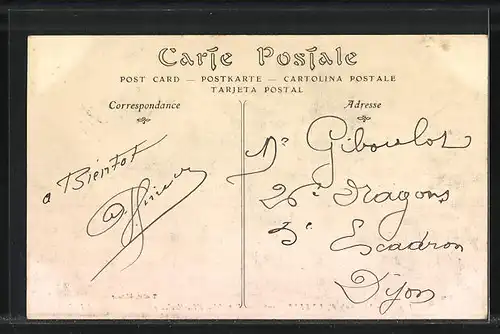 Carte Postale
POST CARD — POSTKARTE — CARTOLINA POSTALE
TARJETA POSTAL
Correspondance
Adresse
a Bientot
Giboulot
26e Dragons
3e Escadron
Dijon